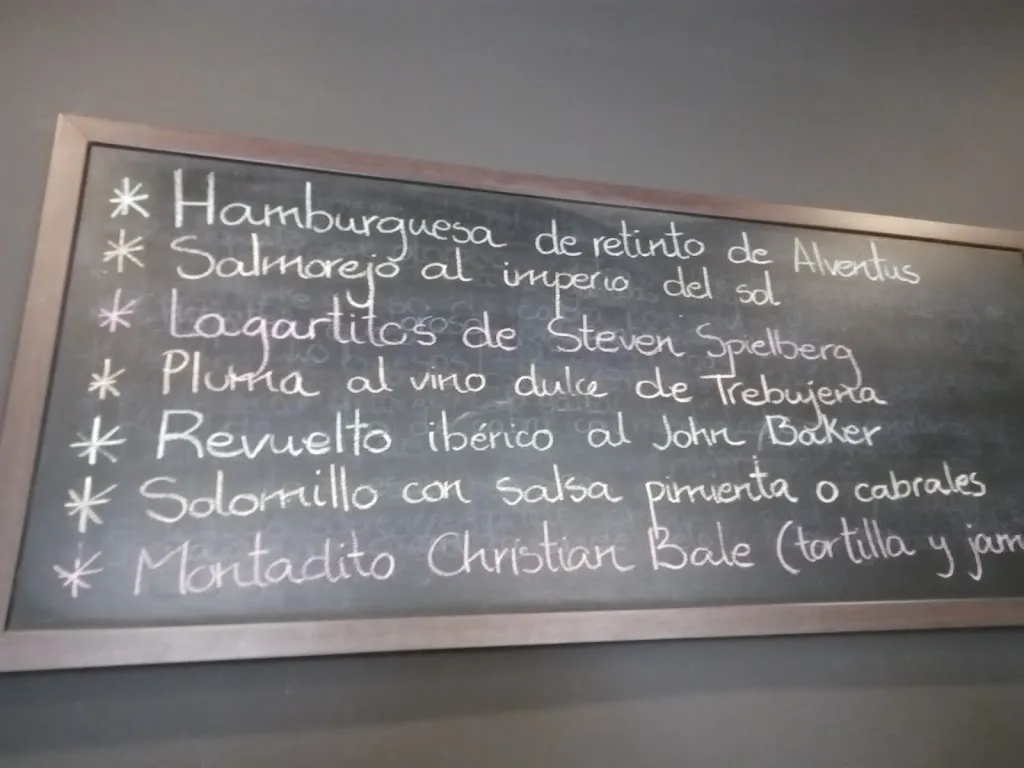 * Hamburguesa de retinto de Alventus
* Salmorejo al imperio del sol
* Lagartitos de Steven Spielberg
* Pluma al vino dulce de Trebujena
* Revuelto ibérico al John Baker
* Solomillo con salsa pimienta o cabrales
* Montadito Christian Bale (tortilla y jam